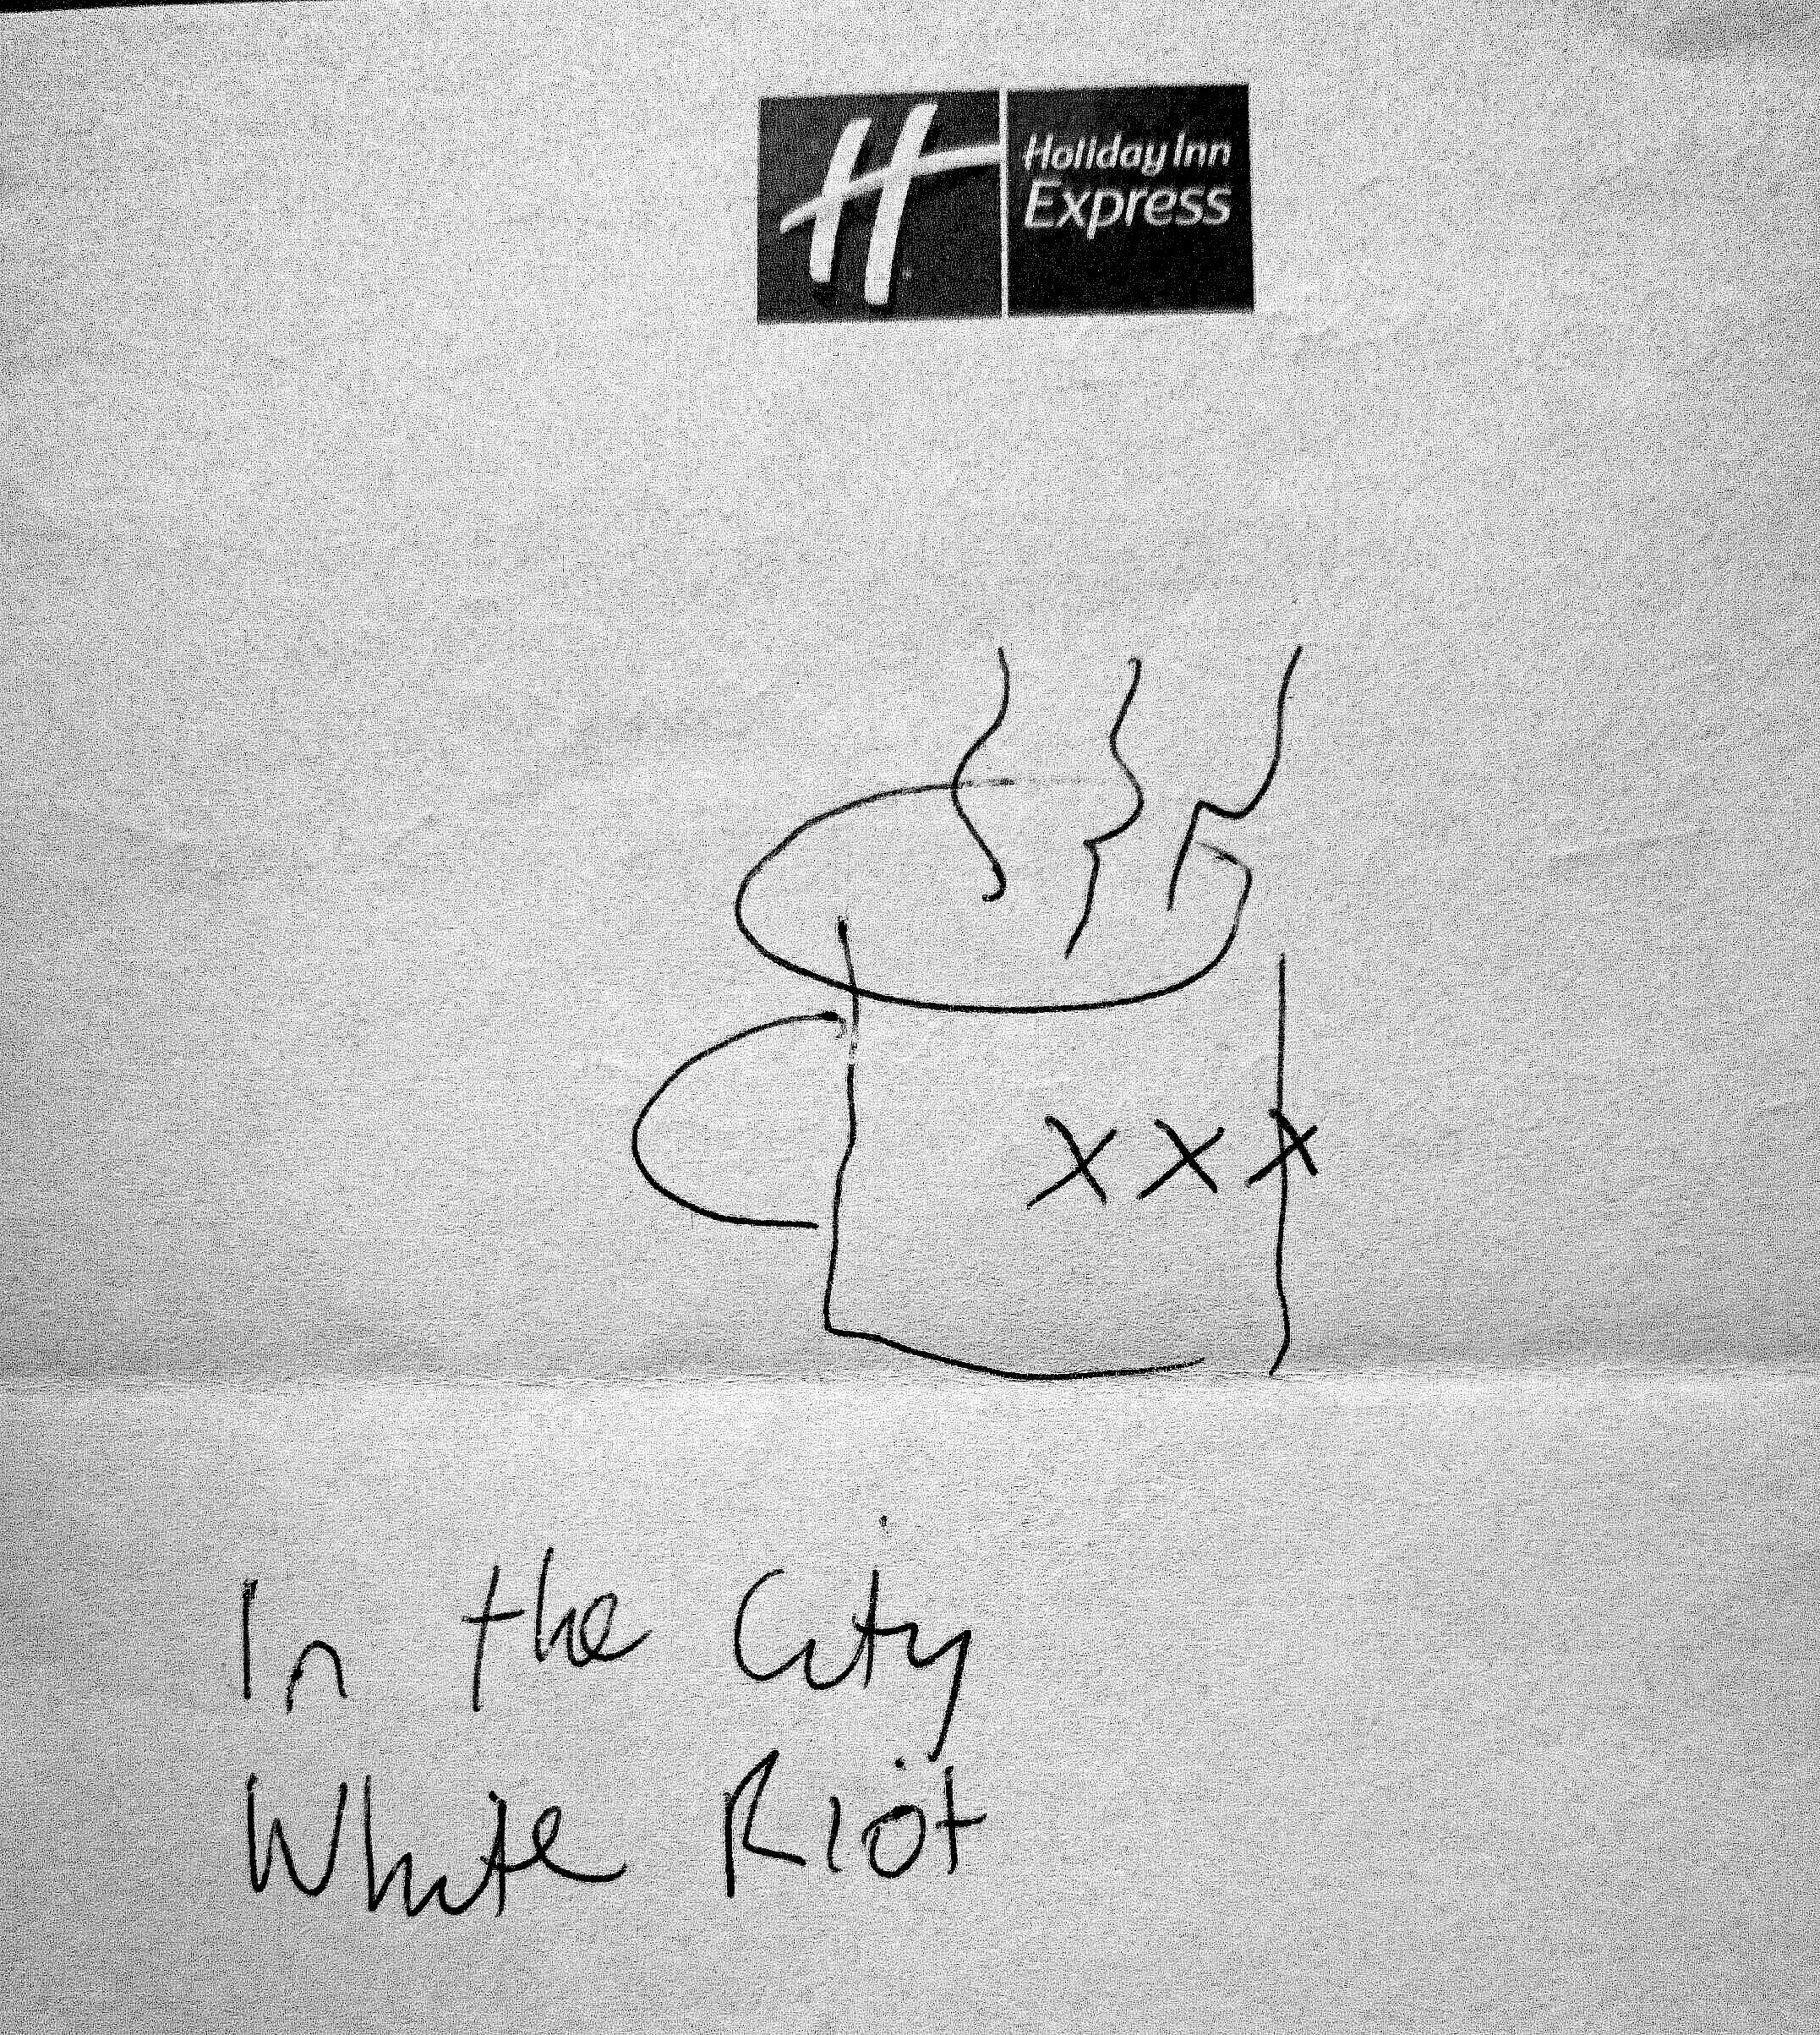 H
Holiday Inn
Express
XXX
In the City
White Riot